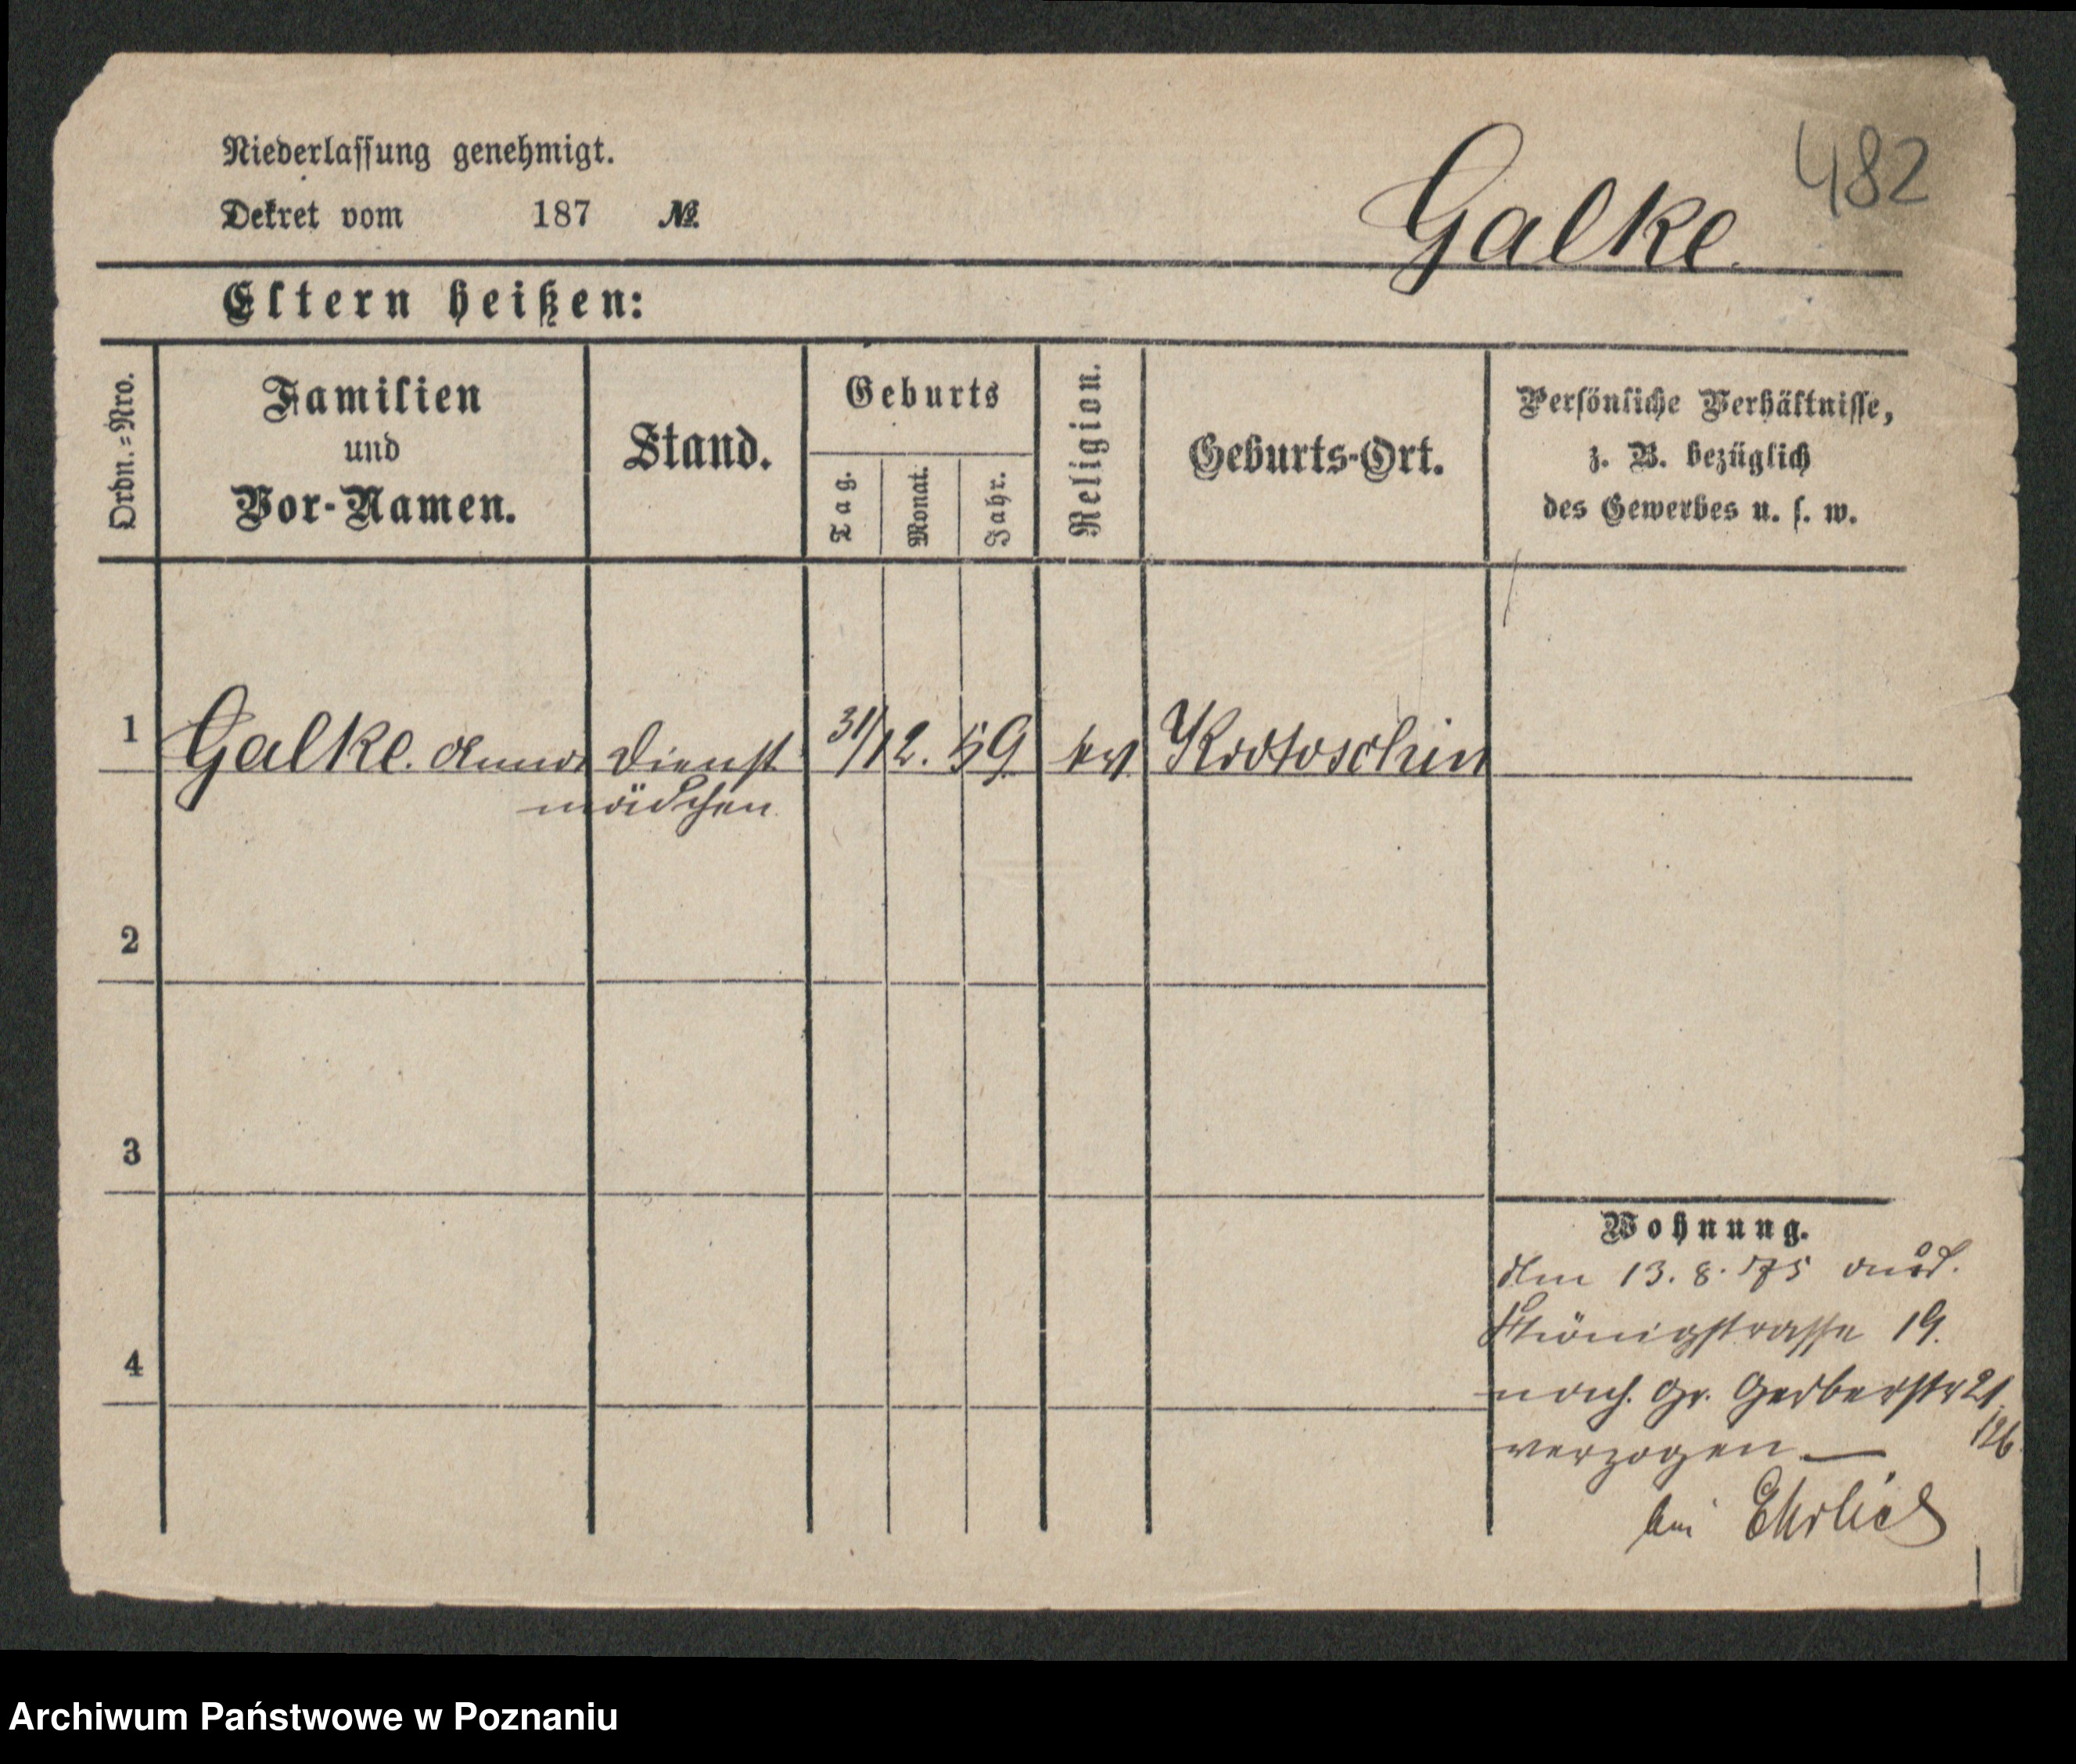 482
Niederlassung genehmigt.
Dekret vom 187 №
Galke.
Eltern heißen:
Ordn.=Nro.
Familien
und
Vor-Namen.
Stand.
Geburts
Tag.
Monat.
Jahr.
Religion.
Geburts-Ort.
Persönliche Verhältnisse,
z. B. bezüglich
des Gewerbes u. s. w.
1 Galke. Anna Dienst 31/12. 59 ev. Krotoschin
mädchen.
2
3
4
Wohnung.
Am 13. 8. 75
Königstrasse 19.
nach Gr. Gerberstr 21
126
verzogen —
bei Ehrlich
Archiwum Państwowe w Poznaniu